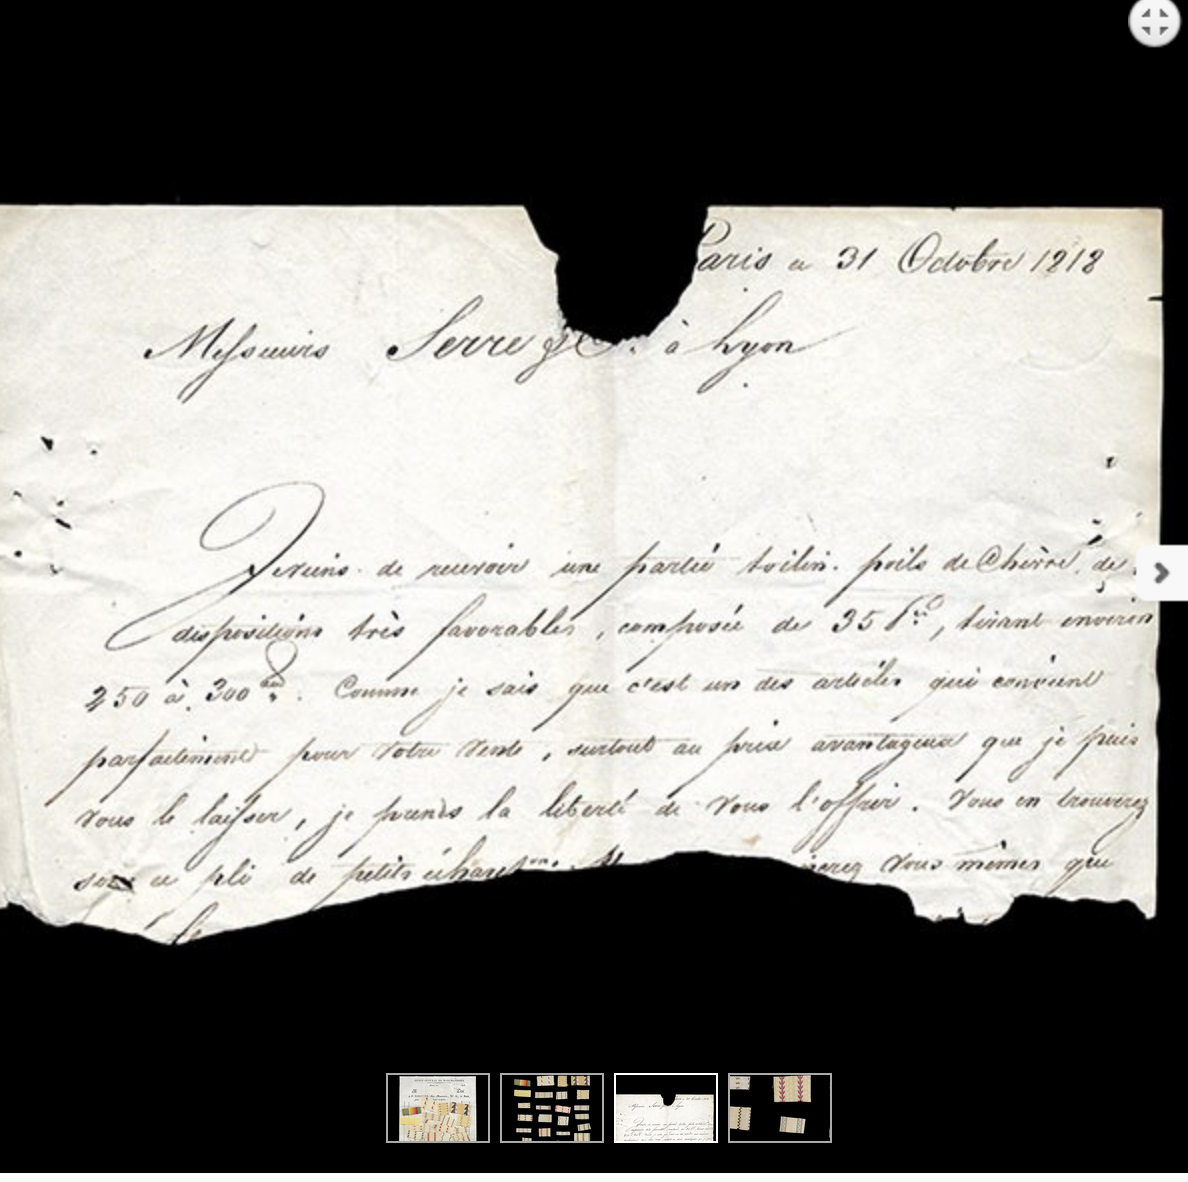 Paris ce 31 Octobre 1818
Messieurs Serre & Cie. à Lyon
Je viens de recevoir une partie toilin. poils de Chèvre, de
dispositions très favorables, composée de 35 tirant environ
250 à 300 Comme je sais que c'est un des articles qui convient
parfaitement pour votre vente, surtout au prix avantageux que je puis
vous le laisser, je prends la liberté de vous l'offrir. Vous en trouverez
sous ce pli de petits échantons. vous mêmes que
le